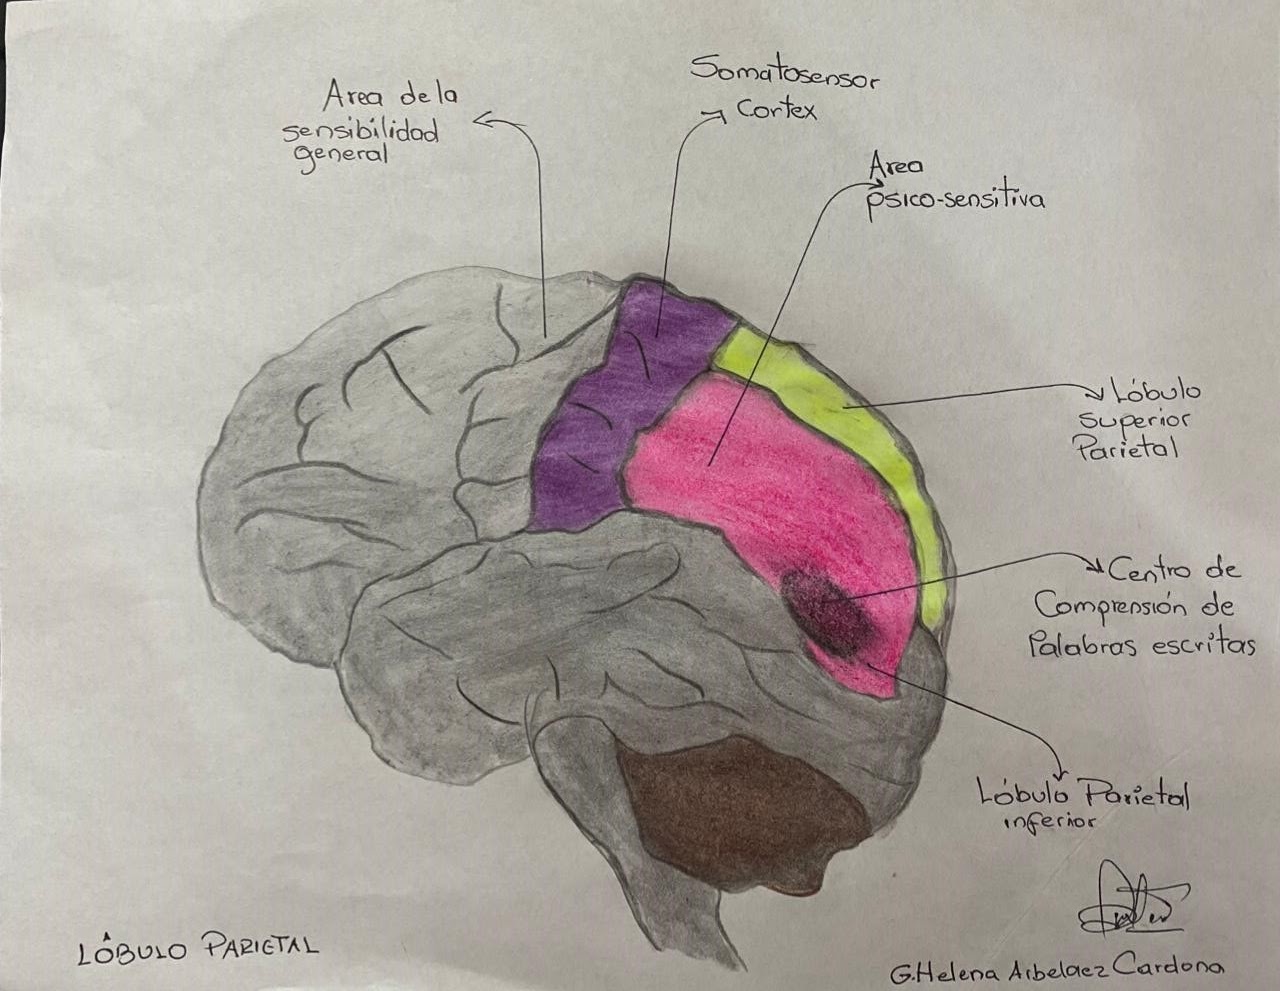 Area de la
sensibilidad
general
Somatosensor
Cortex
Area
psico-sensitiva
Lóbulo
Superior
Parietal
Centro de
Comprensión de
Palabras escritas
Lóbulo Parietal
inferior
LÓBULO PARIETAL
G.Helena Arbelaez Cardona